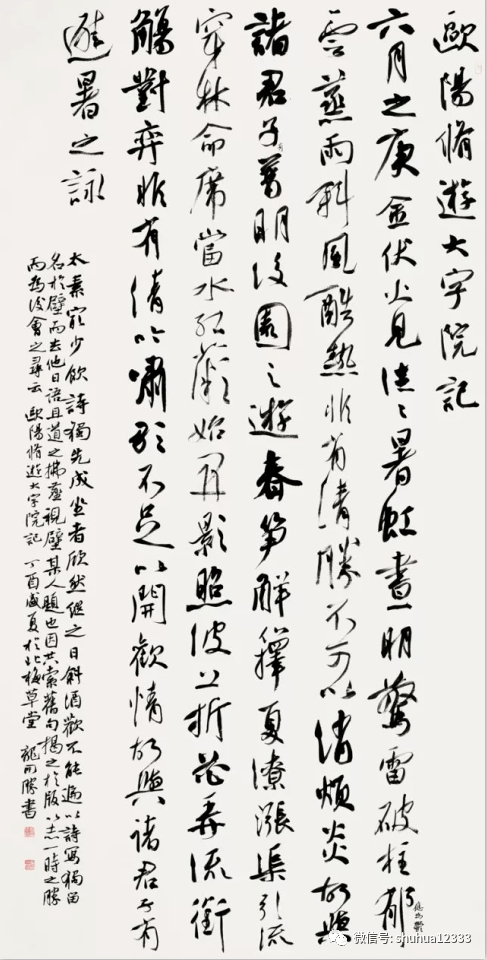 歐陽脩遊大字院記
六月之庚金伏火見往々暑虹晝明驚雷破柱郁
雲蒸雨斜風酷熱非有清勝不可以消煩炎故與
諸君子普明後園之遊春笋解籜夏潦漲渠引流
穿林命席當水紅薇始開影照波上折花弄流銜
觴對弈非有清吟嘯歌不足以開歡情故與諸君子有
避暑之詠
太素最少飲詩獨先成坐者欣然繼之日斜酒歡不能遍以詩寫獨留
名於壁而去他日語且道之拂塵視壁某人題也因共索舊句揭之於版以志一時之勝
而為後會之尋云 歐陽脩遊大字院記 丁酉盛夏於北梅草堂 龍開勝書
微信号: shuhua12333